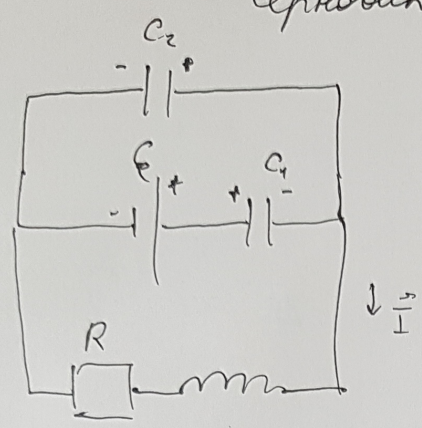 Черновик
C₂
- +
ℰ
C₁
- +
+ -
I
R